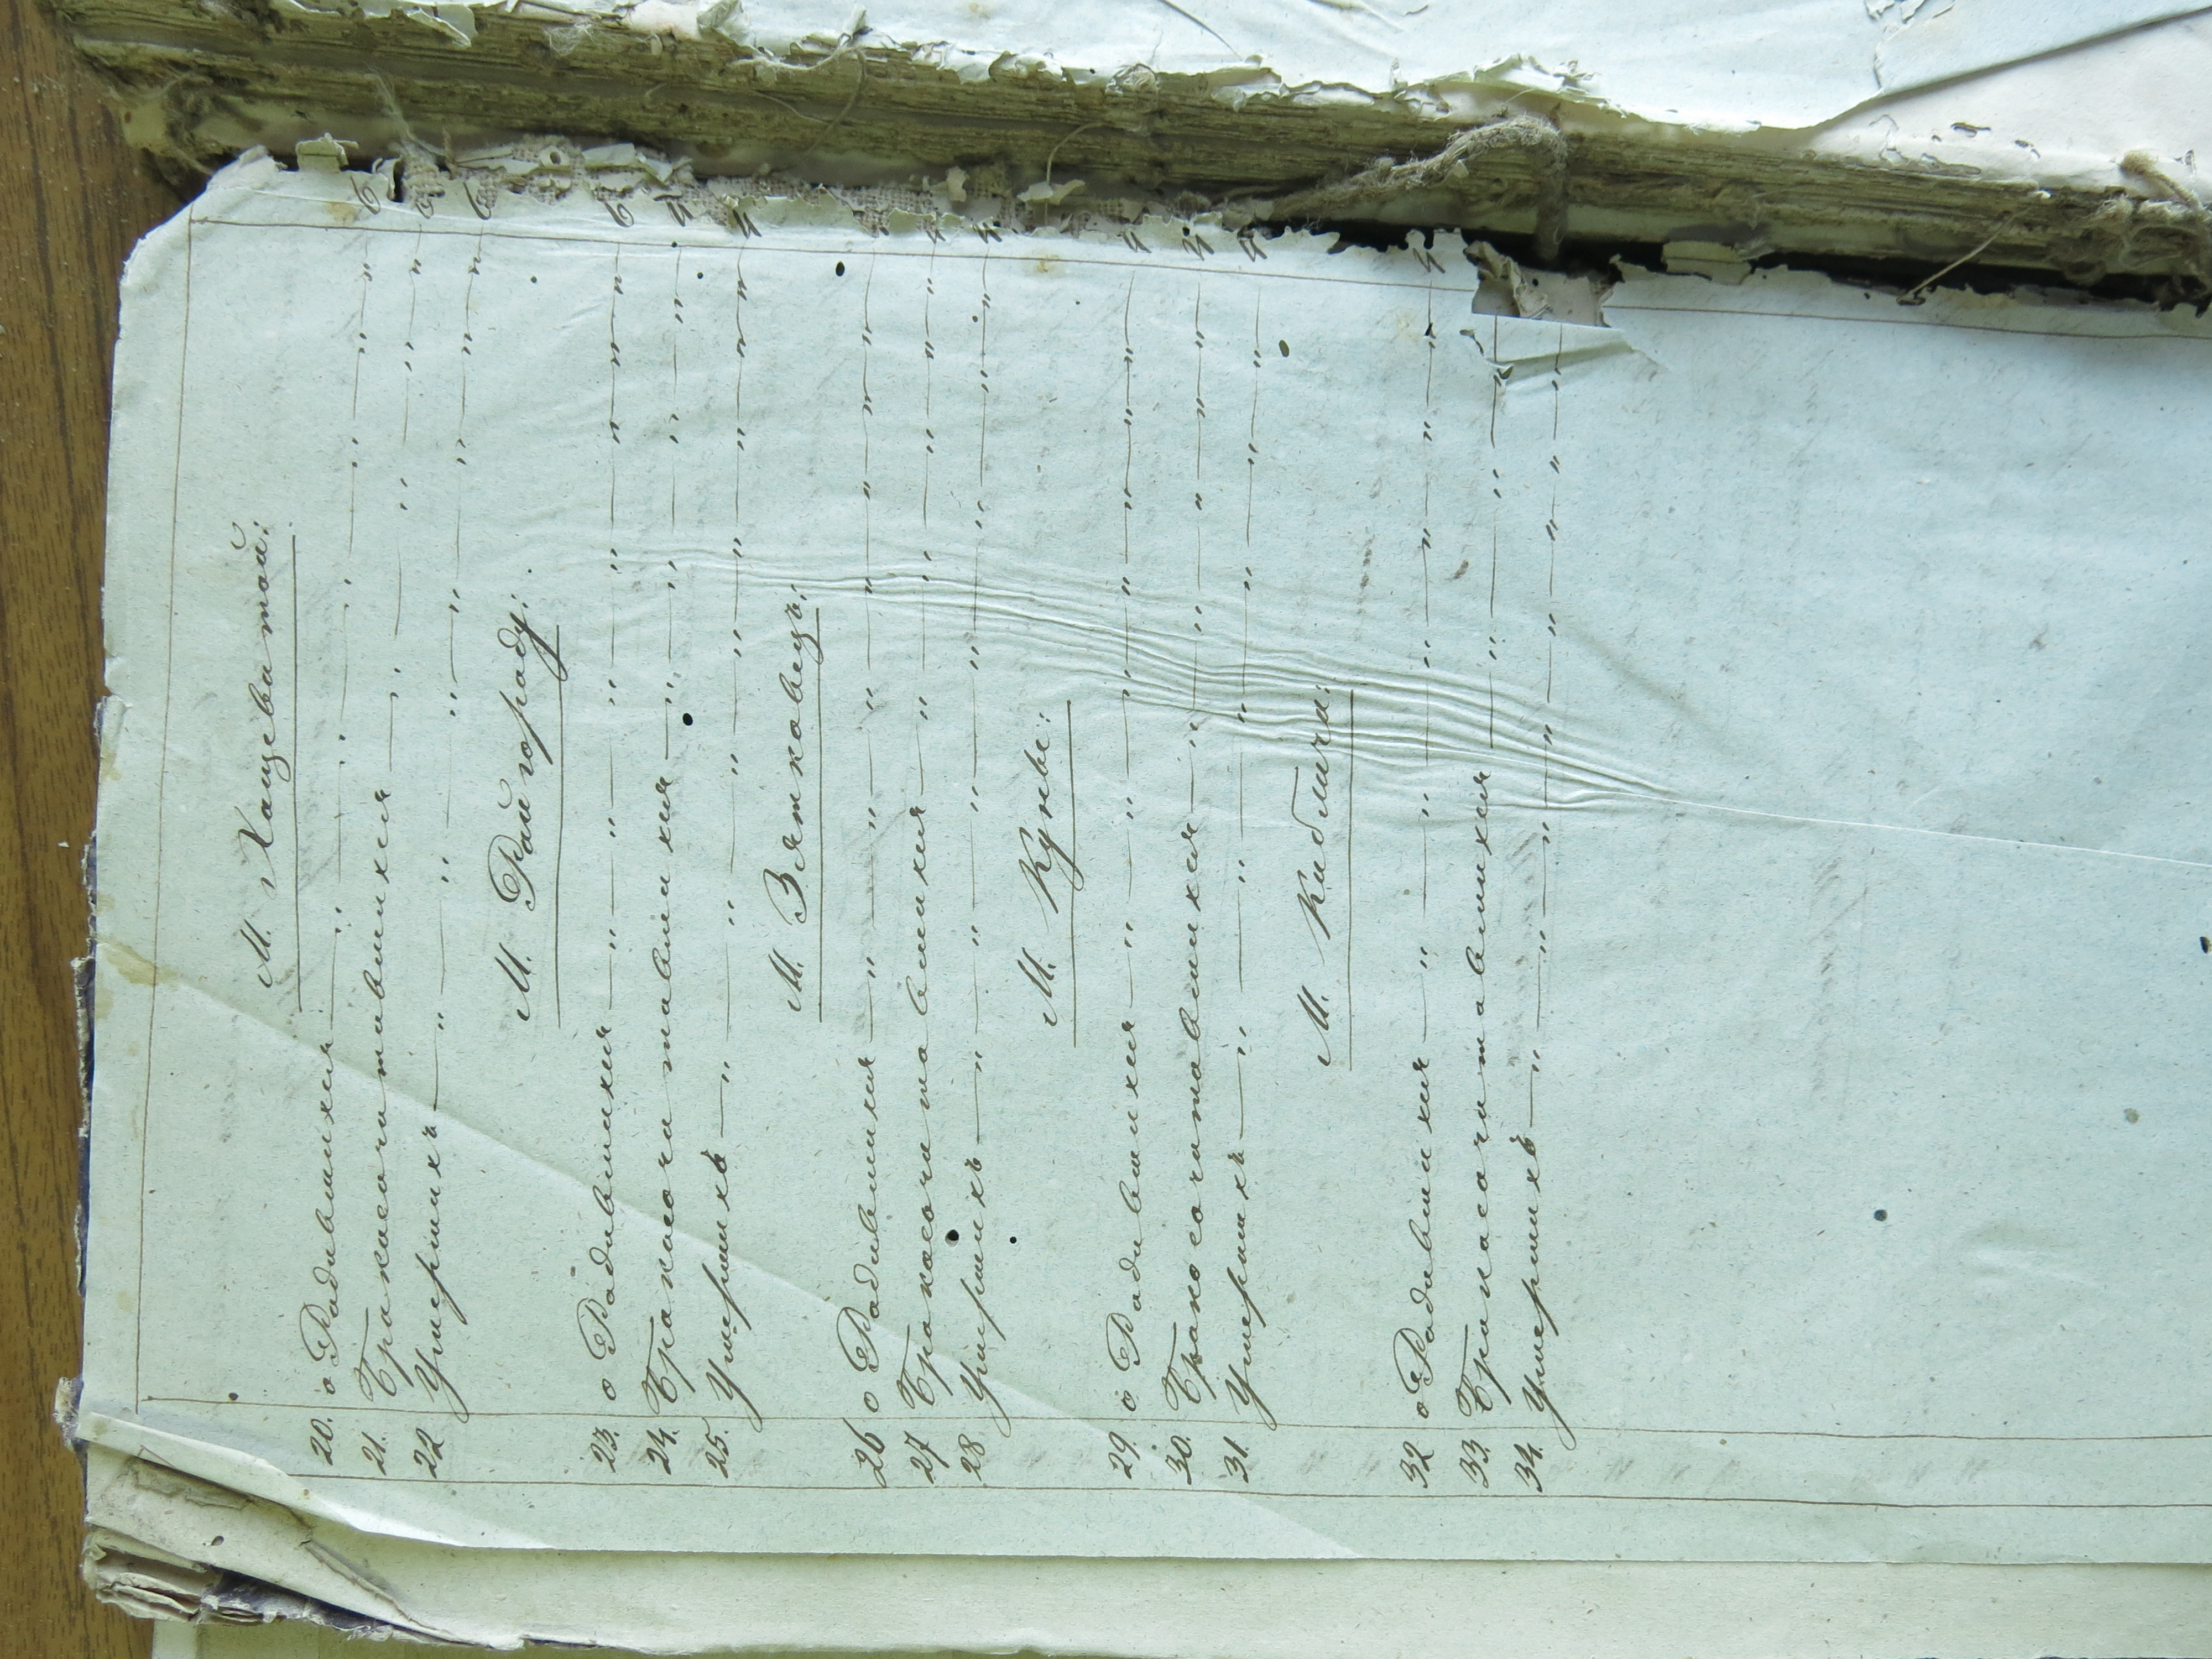 М. Хащеватой:
20. о Родившихся — " — " — " — " — " — "
21. Бракосочитавшихся — " — " — " — "
22 Умершихъ — " — " — " — " — " — " — "
М. Райгороду:
23. о Родившихся — " — " — " — " — " — " — "
24. Бракосочитавшихся — " — " — " — "
25. Умершихъ — " — " — " — " — " — " — " — "
М. Вятковецъ:
26 о Родившихся — " — " — " — " — " — " — "
27 Бракосочитавшихся — " — " — " — " — "
28 Умершихъ — " — " — " — " — " — " — "
М. Куневе:
29. о Родившихся — " — " — " — " — " — " — "
30. Бракосочитавшихся — " — " — " — " — "
31. Умершихъ — " — " — " — " — " — " — "
М. Киблича:
32 о Родившихся — " — " — " — " — " — "
33. Бракосочитавшихся — " — " — "
34. Умершихъ — " — " — " — " — " — " — " — "